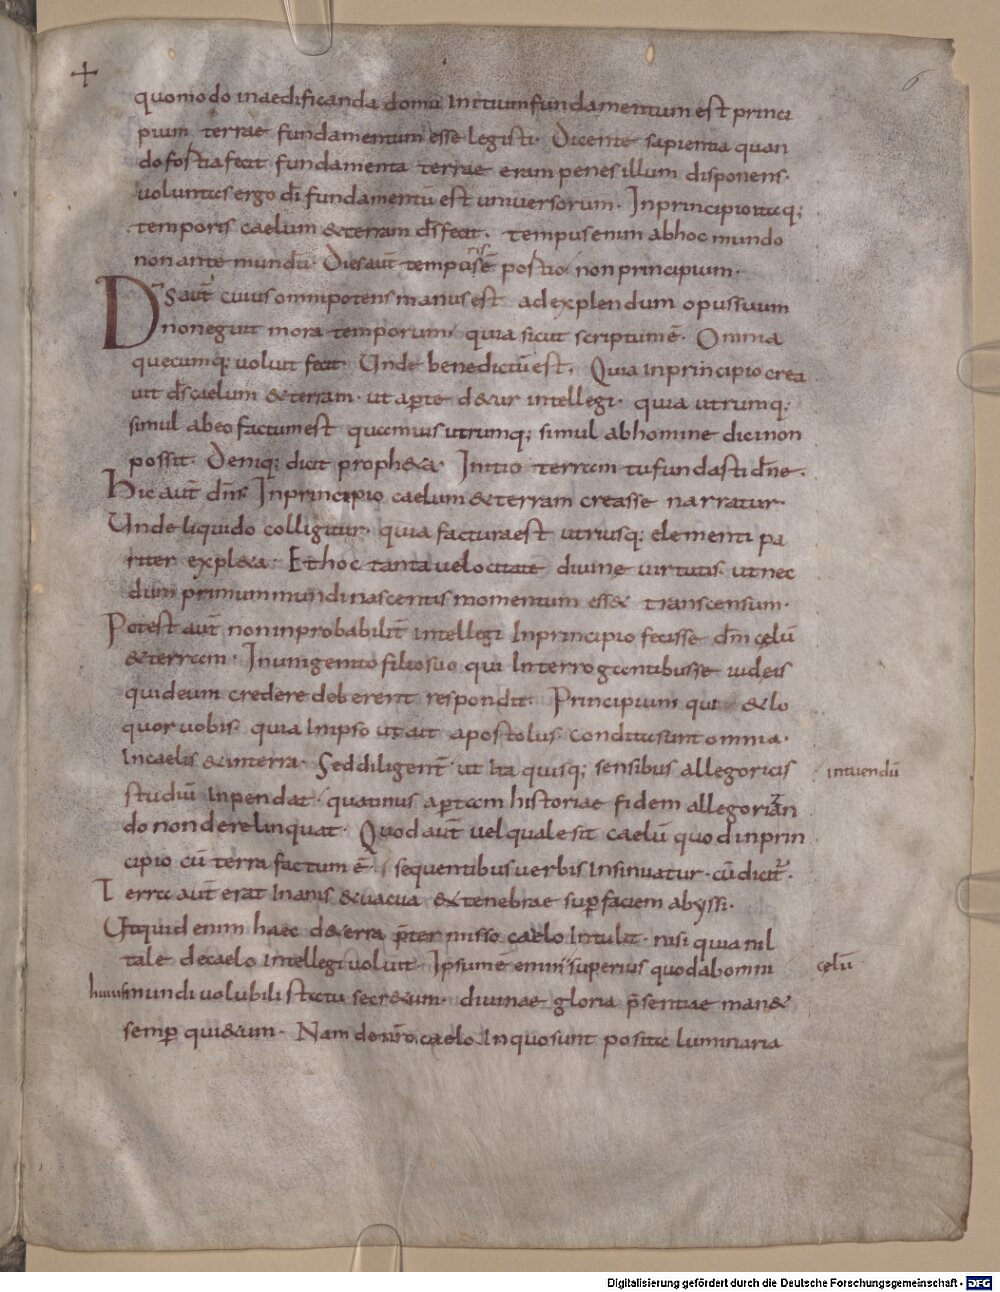 6
quomodo inaedificanda domu Initium fundamentum est princi
pium terrae fundamentum esse legisti. Dicente sapientia quan
do fortia fecit fundamenta terrae eram penes illum disponens.
voluntas ergo dī fundamentū est universorum. In principio itaq;
temporis caelum & terram d̄s fecit. tempus enim ab hoc mundo
non ante mundū. Dies aut̄ temporis ē portio non principium.
D̄s aut̄ cuius omnipotens manus est ad explendum opus suum
non eguit mora temporum quia sicut scriptum ē. Omnia
quecumq; voluit fecit. Unde bene dictū est, Quia in principio crea
uit d̄s caelum & terram. ut aperte d&ur intellegi. quia utrumq;
simul ab eo factum est quamuis utrumq; simul ab homine dici non
possit. Deniq; dicit proph&a. Initio terram tu fundasti dn̄e.
Hic aut̄ dn̄s In principio caelum & terram creasse narratur.
Unde liquido colligitur. quia factura est utriusq; elementi pa
riter expl&a. Et hoc tanta velocitate divine virtutis. ut nec
dum primum mundi nascentis momentum ess& transcensum.
Potest aut̄ non inprobabilit̄ intellegi In principio fecisse dm̄ cęlū
& terram. In unigenito filio suo qui Interrogantibus se iudeis
quid eum credere deberent respondit. Principium qui & lo
quor uobis. quia In ipso ut ait apostolus condita sunt omnia.
In caelis & in terra. Sed diligent̄ ut ita quisq; sensibus allegoricis
intuendū
studiū Inpendat. quatinus apertam historiae fidem allegorizan
do non derelinquat. Quod aut̄ vel quale sit caelū quod in prin
cipio cū terra factum ē sequentibus verbis Insinuatur. cū dicit̄.
Terra aut̄ erat Inanis & vacua & tenebrae sup̄ faciem abyssi.
Ut quid enim haec de terra p̄ter misso caelo Intulit. nisi quia nil
tale de caelo intellegi voluit. Ipsum ē enim superius quod ab omni
cęlū
huius mundi volubili statu secr&um. divinae gloria p̄sentiae man&
semp̄ qui&um. Nam de nr̄o caelo In quo sunt posita luminaria
Digitalisierung gefördert durch die Deutsche Forschungsgemeinschaft - DFG